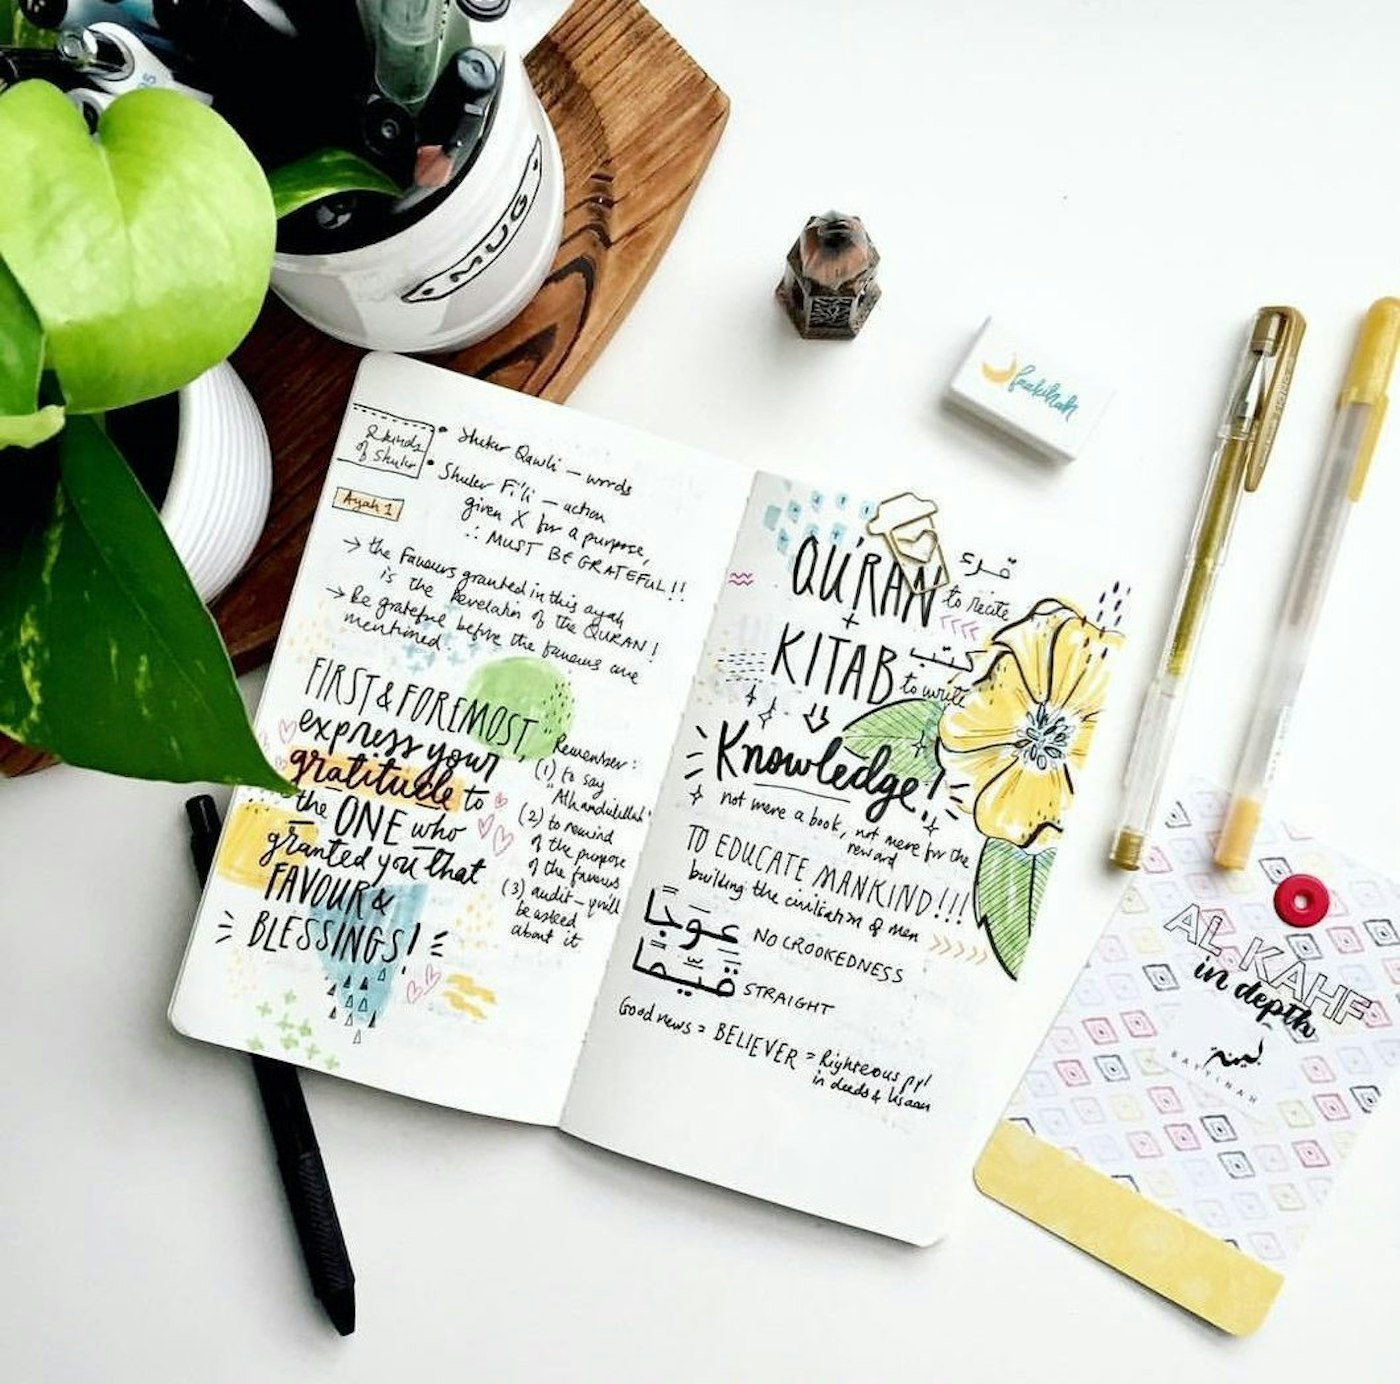 MUG
fakihah
2 kinds
of Shukr
• Shukr Qawli — words
• Shukr Fi'li — action
given X for a purpose,
∴ MUST BE GRATEFUL!!
Ayah 1
→ the Favours granted in this ayah
is the Revelation of the QURAN!
→ Be grateful before the favours are
mentioned.
FIRST & FOREMOST,
express your
gratitude to
the ONE who
granted you that
FAVOUR &
BLESSINGS!
Remember:
(1) to say
"Alhamdulillah"
(2) to remind
of the purpose
of the favours
(3) audit — you'll
be asked
about it
QU'RAN قرء to recite
+
KITAB كتب to write
Knowledge!
not mere a book, not mere for the
reward
TO EDUCATE MANKIND!!!
building the civilisation of men
عِوَجًا NO CROOKEDNESS
قَيِّمًا STRAIGHT
Good news = BELIEVER = Righteous ppl
in deeds & lisaan
AL KAHF
in depth
بينة
BAYYINAH